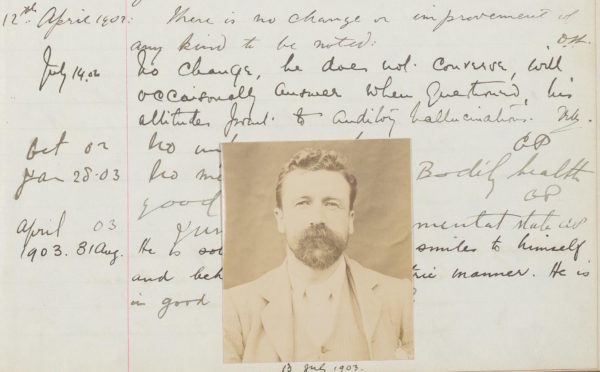 12th April 1902: There is no change or improvement of
any kind to be noted:
July 14.02 No change, he does not converse, will
occaisonally answer when questioned, his
attitudes point to auditory hallucinations.
Oct 02 No
Jan 28.03 No Bodily health
good
April 03 mental state
1903. 31 Aug. He is smiles to himself
and manner. He is
in good
13 July 1903.